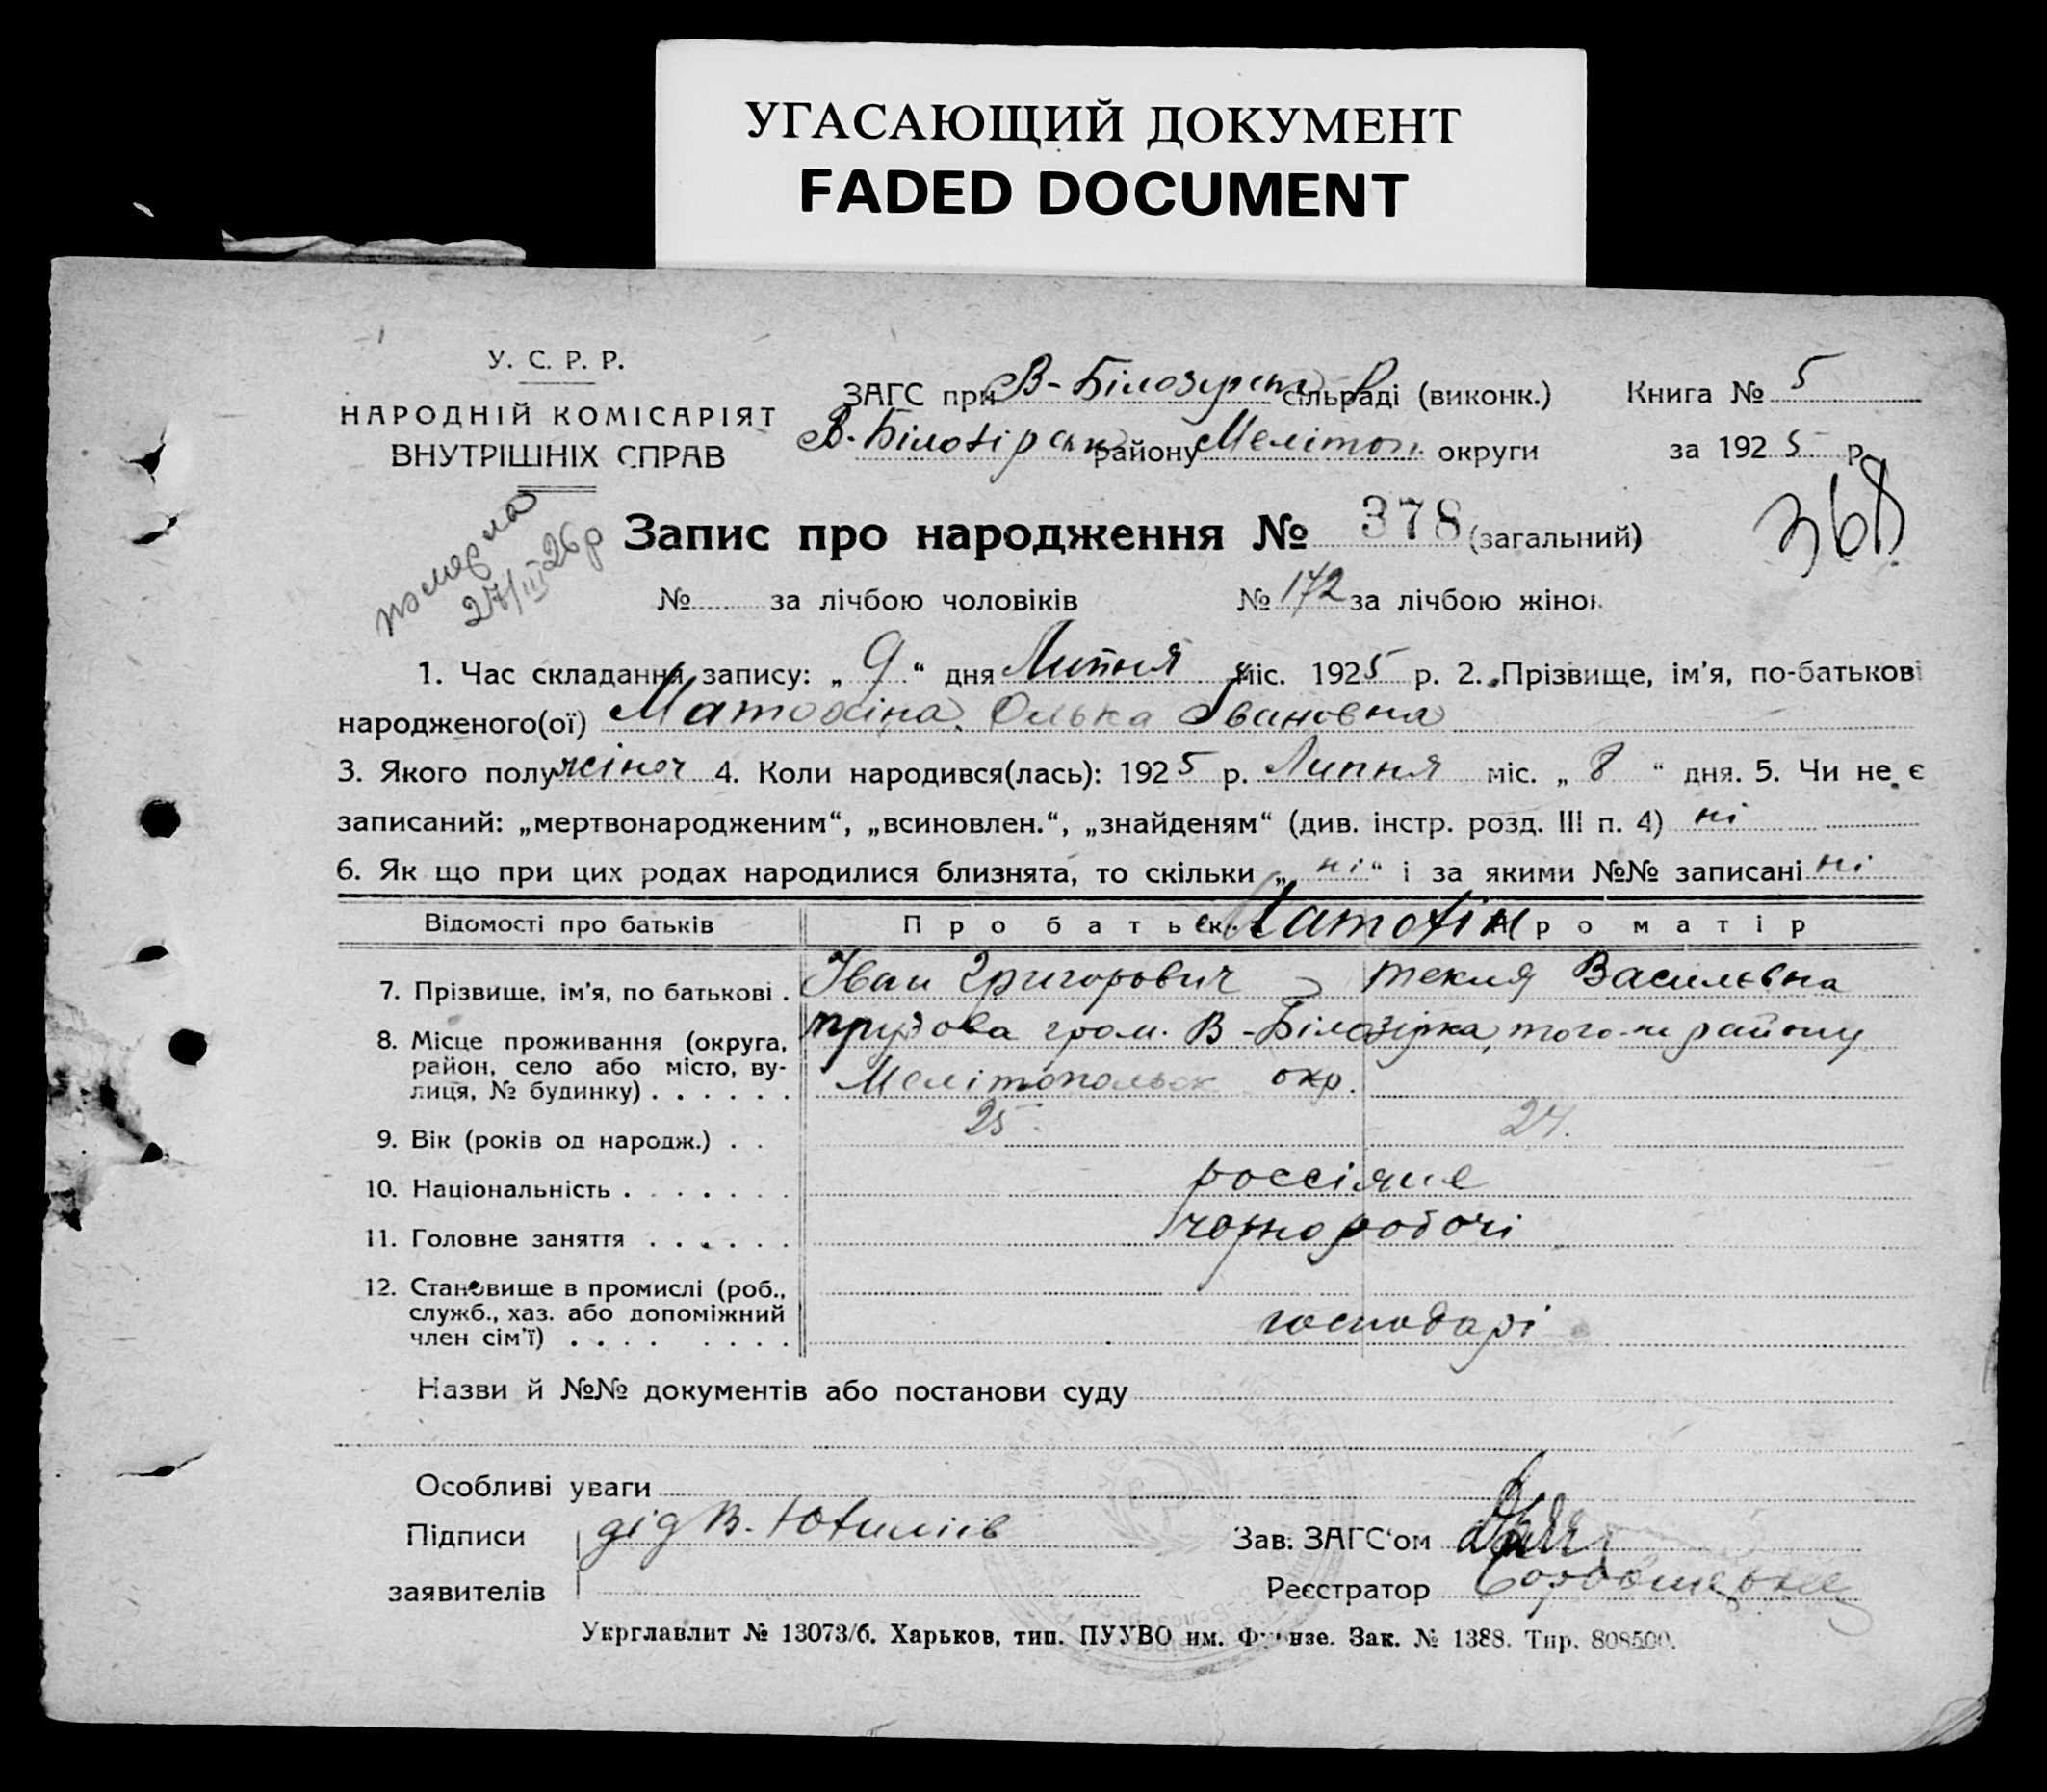 УГАСАЮЩИЙ ДОКУМЕНТ
FADED DOCUMENT
У. С. Р. Р.
НАРОДНІЙ КОМІСАРІЯТ
ВНУТРІШНІХ СПРАВ
ЗАГС при В-Білозірськ сільраді (виконк.)
Книга № 5
В.-Білозірськ району Мелітоп. округи
за 1925 р.
368
померла
27/III 26р
Запис про народження № 378 (загальний)
№ за лічбою чоловіків № 172 за лічбою жінок
1. Час складання запису: „ 9 “ дня Липня міс. 1925 р. 2. Прізвище, ім’я, по-батькові
народженого(ої) Матохіна Олька Івановна
3. Якого полу жіноч 4. Коли народився(лась): 1925 р. Липня міс. „ 8 “ дня. 5. Чи не є
записаний: „мертвонародженим“, „всиновлен.“, „знайденям“ (див. інстр. розд. III п. 4) ні
6. Як що при цих родах народилися близнята, то скільки „ ні “ і за якими №№ записані ні
Відомості про батьків Про батька Про матір
Матохін
7. Прізвище, ім’я, по батькові . Іван Григорович Текля Васильєвна
8. Місце проживання (округа, район, село або місто, вулиця, № будинку) . . . . . .
трудова гром. В-Білозірка, того-ж району
Мелітопольськ окр.
9. Вік (років од народж.) . . 25 24.
10. Національність . . . . . . . россіяне
11. Головне заняття . . . . . . чорноробочі
12. Становище в промислі (роб., служб., хаз. або допоміжний член сім’ї) . . . . . . . .
господарі
Назви й №№ документів або постанови суду
Особливі уваги
Підписи дід В.
Зав. ЗАГС‘ом
заявителів
Реєстратор
Укрглавлит № 13073/б. Харьков, тип. ПУУВО им. Фрунзе. Зак. № 1388. Тир. 808500.